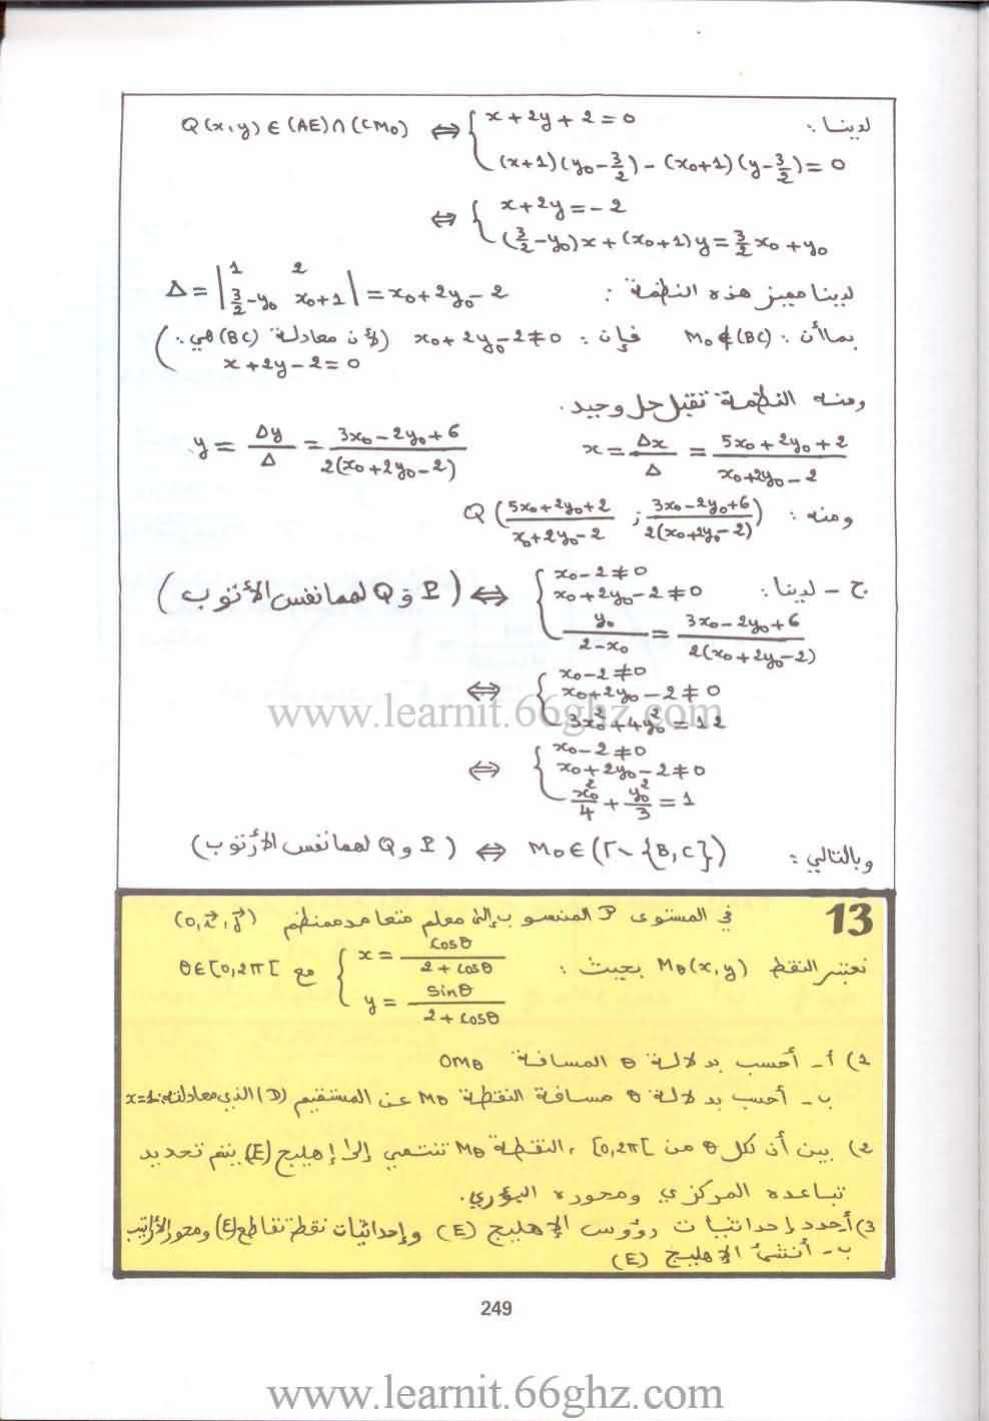 لدينا : Q(x,y) ∈ (AE)∩(CM₀) ⇔ { x+2y+2=0
(x+1)(y₀-3/2)-(x₀+1)(y-3/2)=0
⇔ { x+2y=-2
(3/2-y₀)x+(x₀+1)y=3/2x₀+y₀
لدينا مميز هذه النظمة : Δ = |1 2 ; 3/2-y₀ x₀+1| = x₀+2y₀-2
بما أن : M₀∉(BC) فإن : x₀+2y₀-2≠0 (لأن معادلة (BC) هي :
x+2y-2=0)
ومنه النظمة تقبل حل وحيد.
x = Δx/Δ = (5x₀+2y₀+2)/(x₀+2y₀-2) y = Δy/Δ = (3x₀-2y₀+6)/(2(x₀+2y₀-2))
ومنه : Q((5x₀+2y₀+2)/(x₀+2y₀-2) ; (3x₀-2y₀+6)/(2(x₀+2y₀-2)))
ج - لدينا : (P و Q لهما نفس الأرتوب) ⇔ { x₀-2≠0
x₀+2y₀-2≠0
y₀/(2-x₀) = (3x₀-2y₀+6)/(2(x₀+2y₀-2))
⇔ { x₀-2≠0
x₀+2y₀-2≠0
3x₀²+4y₀²=12
www.learnit.66ghz.com
⇔ { x₀-2≠0
x₀+2y₀-2≠0
x₀²/4 + y₀²/3 = 1
وبالتالي : (P و Q لهما نفس الأرتوب) ⇔ M₀∈(Γ∖{B,C})
13 في المستوى P المنسوب إلى معلم متعامد ممنظم (O,i⃗,j⃗)
نعتبر النقط Mθ(x,y) بحيث : { x = cosθ/(2+cosθ)
y = sinθ/(2+cosθ) مع θ∈[0,2π[
1) أ- أحسب بدلالة θ المسافة OMθ
ب- أحسب بدلالة θ مسافة النقطة Mθ عن المستقيم (D) الذي معادلته x=1
2) بين أن لكل θ من [0,2π[ ، النقطة Mθ تنتمي إلى إهليج (E) يتم تحديد
تباعده المركزي ومحوره البؤري.
3) أ حدد إحداثيات رؤوس الإهليج (E) وإحداثيات نقط تقاطع (E) ومحور الأراتيب
ب- أنشئ الإهليج (E)
249
www.learnit.66ghz.com